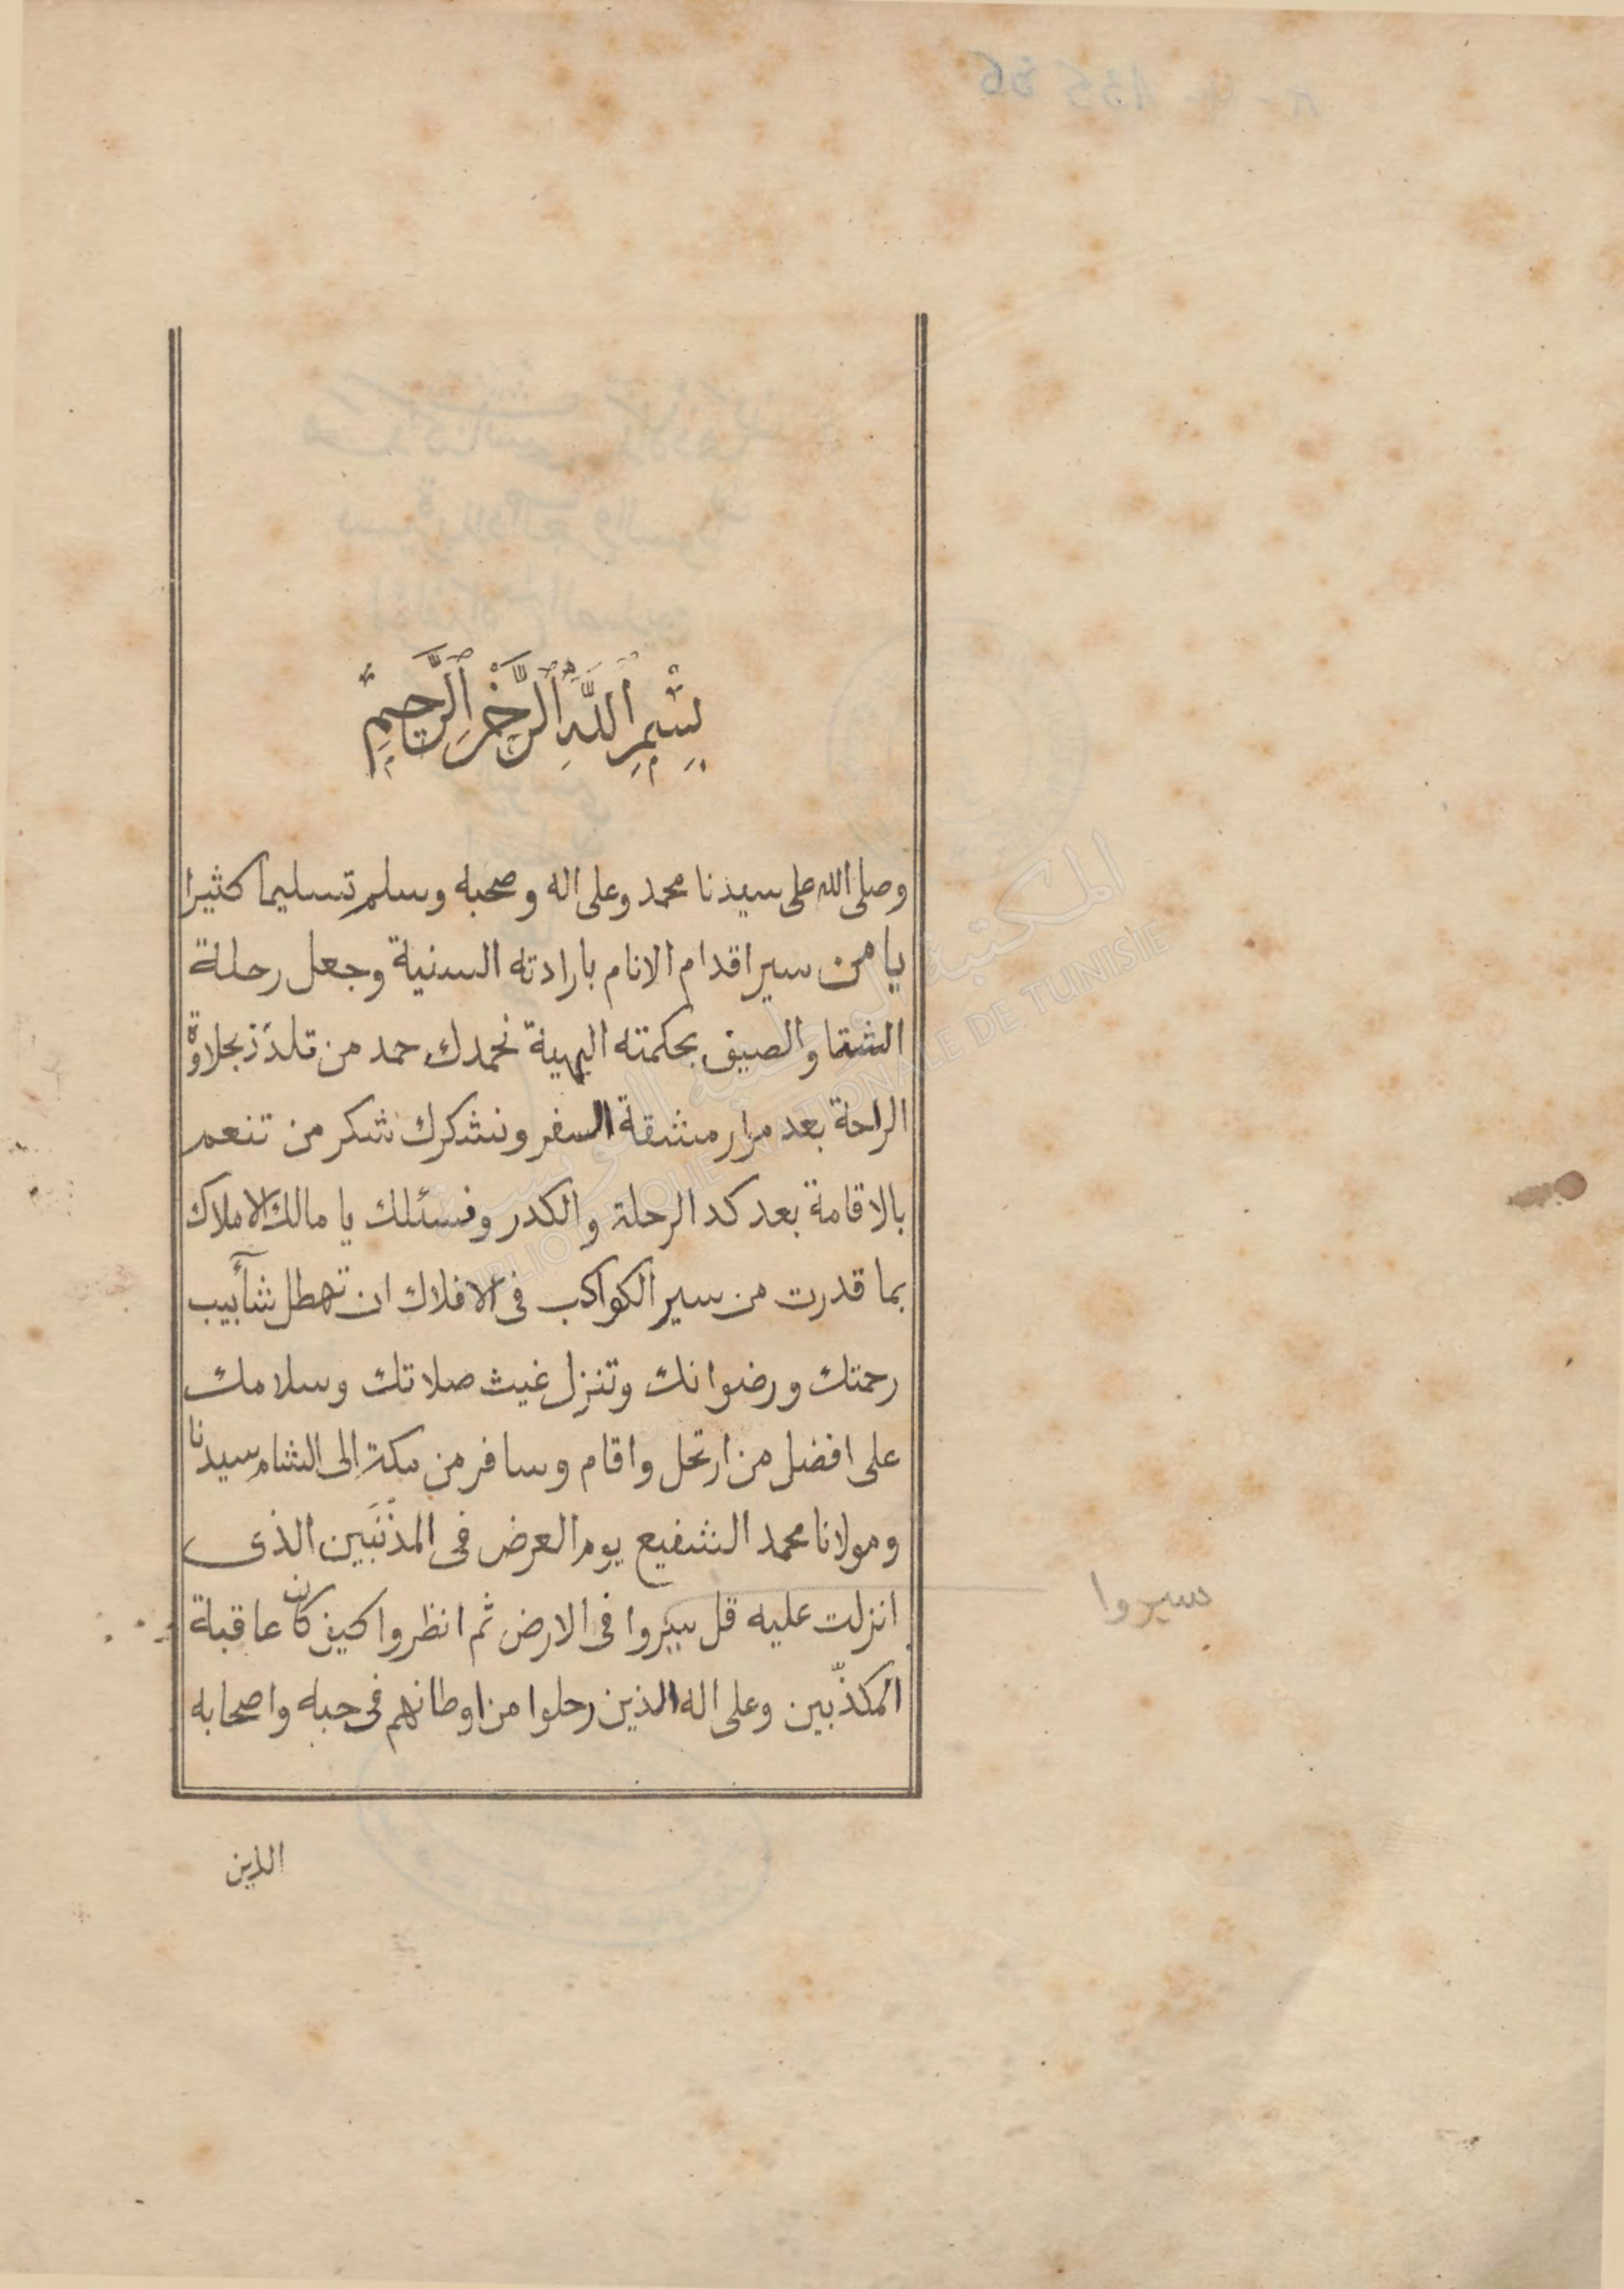 بِسْمِ اللَّهِ الرَّحْمٰنِ الرَّحِيمِ
وصلى الله على سيدنا محمد وعلى اله وصحبه وسلم تسليما كثيرا
يا من سير اقدام الانام بارادته السنية وجعل رحلة
الشتا والصيف بحكمته البهية نحمدك حمد من تلذذ بحلاوة
الراحة بعد مرار مشقة السفر ونشكرك شكر من تنعم
بالاقامة بعد كد الرحلة والكدر ونسئلك يا مالك الاملاك
بما قدرت من سير الكواكب فى الافلاك ان تهطل شآبيب
رحمتك ورضوانك وتنزل غيث صلاتك وسلامك
على افضل من ارتحل واقام وسافر من مكة الى الشام سيدنا
ومولانا محمد الشفيع يوم العرض فى المذنبين الذى
انزلت عليه قل سيروا فى الارض ثم انظروا كيف كان عاقبة
المكذّبين وعلى اله الذين رحلوا من اوطانهم فى حبه واصحابه
سيروا
الذين
المكتبة الوطنية التونسية
BIBLIOTHEQUE NATIONALE DE TUNISIE